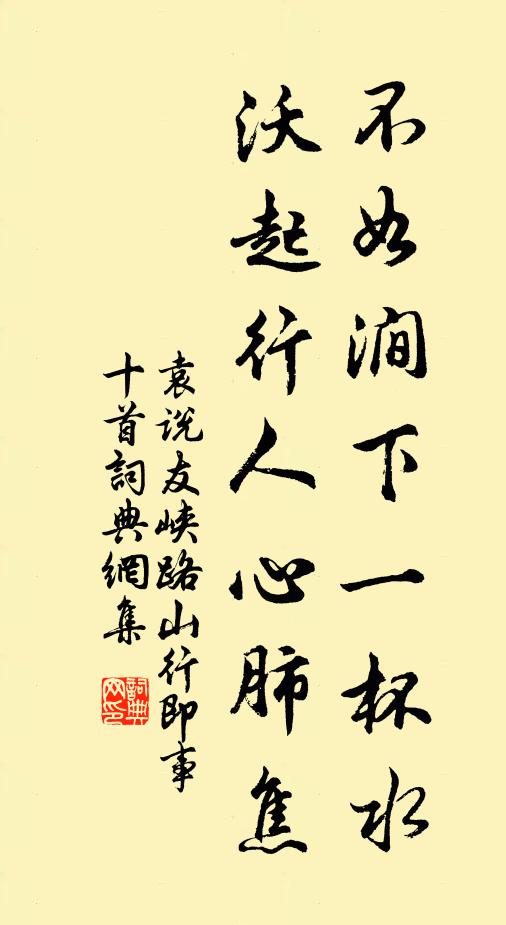 不如澗下一杯水
沃起行人心肺焦
袁說友峽路山行即事
十首詞典網集
詞典
网印